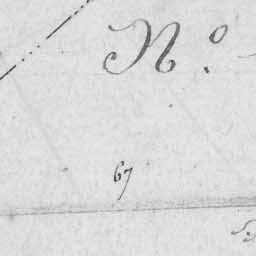 N.º
67